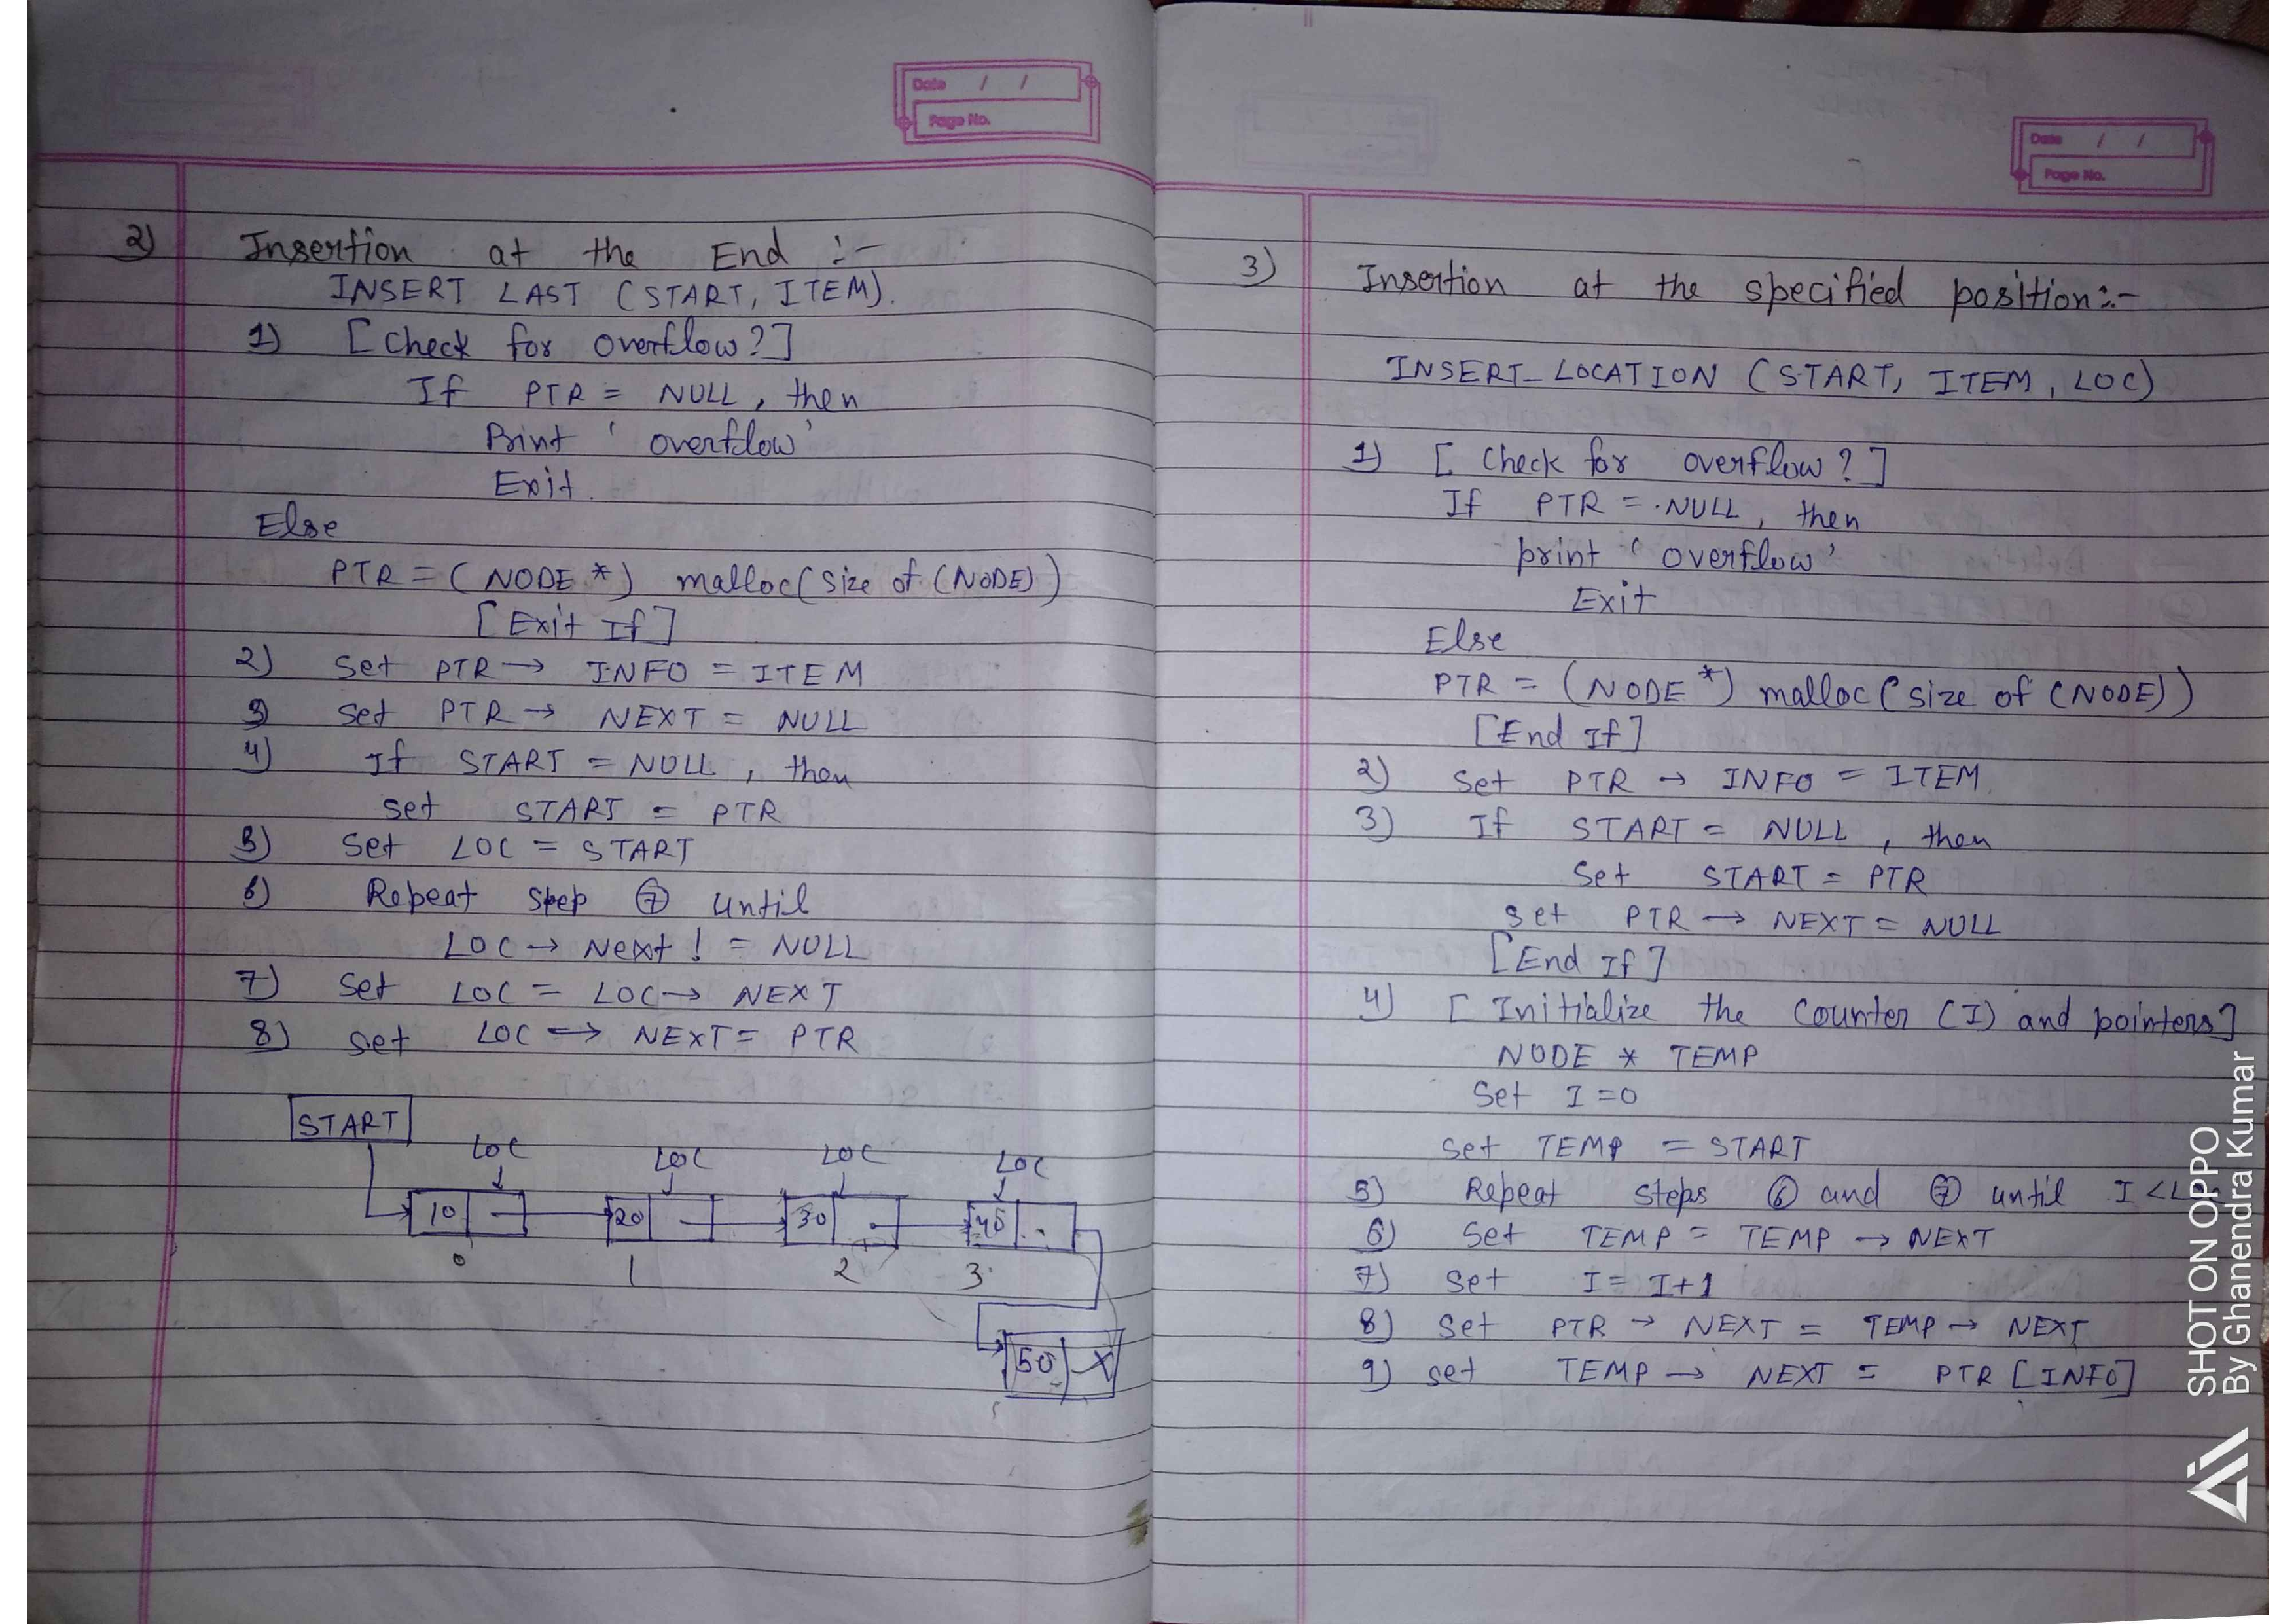 Date / /
Page No.
2) Insertion at the End :-
INSERT LAST (START, ITEM).
1) [Check for overflow?]
If PTR = NULL, then
Print ' overflow'
Exit.
Else
PTR = (NODE *) malloc(size of (NODE))
[Exit If]
2) Set PTR → INFO = ITEM
3) Set PTR → NEXT = NULL
4) If START = NULL, then
set START = PTR
5) Set LOC = START
6) Repeat step ⑦ until
LOC → Next ! = NULL
7) Set LOC = LOC → NEXT
8) set LOC → NEXT = PTR
START
LOC LOC LOC LOC
10 20 30 40
0 1 2 3
50 X
Date / /
Page No.
3) Insertion at the specified position:-
INSERT_LOCATION (START, ITEM, LOC)
1) [Check for overflow?]
If PTR = NULL, then
print 'overflow'
Exit
Else
PTR = (NODE *) malloc(size of (NODE))
[End If]
2) Set PTR → INFO = ITEM
3) If START = NULL, then
Set START = PTR
set PTR → NEXT = NULL
[End If]
4) [Initialize the Counter (I) and pointers]
NODE * TEMP
Set I = 0
Set TEMP = START
5) Repeat steps ⑥ and ⑦ until I <
6) Set TEMP = TEMP → NEXT
7) Set I = I + 1
8) Set PTR → NEXT = TEMP → NEXT
9) set TEMP → NEXT = PTR [INFO]
SHOT ON OPPO
By Ghanendra Kumar